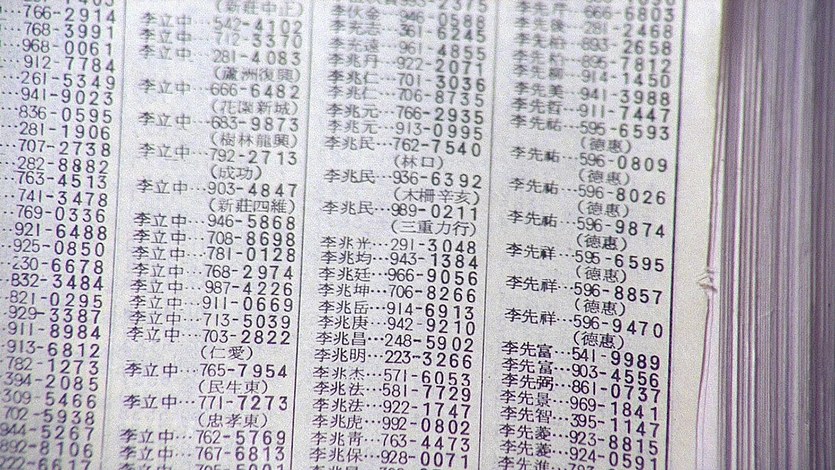 766-2914
768-3991
968-0061
912-7784
261-5349
941-9023
836-0595
281-1906
707-2738
282-8882
763-4513
741-3478
769-0336
921-6488
925-0850
230-6678
832-3484
821-0295
929-3387
911-8984
913-6812
782-1273
394-2085
309-5466
702-5938
944-5267
892-8106
(新莊中正)
李立中…542-4102
李立中…712-3370
李立中…281-4083
(蘆洲復興)
李立中…666-6482
(花園新城)
李立中…683-9873
(樹林龍興)
李立中…792-2713
(成功)
李立中…903-4847
(新莊四維)
李立中…946-5868
李立中…708-8698
李立中…781-0128
李立中…768-2974
李立中…987-4226
李立中…911-0669
李立中…713-5039
李立中…703-2822
(仁愛)
李立中…765-7954
(民生東)
李立中…771-7273
(忠孝東)
李立中…762-5769
李立中…767-6813
李伏金…946-0588
李充志…361-6245
李充遠…961-4855
李兆丹…922-2071
李兆仁…701-3036
李兆仁…706-8735
李兆元…766-2935
李兆元…913-0995
李兆民…762-7540
(林口)
李兆民…936-6392
(木柵辛亥)
李兆民…989-0211
(三重力行)
李兆光…291-3048
李兆均…943-1384
李兆廷…966-9056
李兆坤…706-8266
李兆岳…914-6913
李兆庚…942-9210
李兆昌…248-5902
李兆明…223-3266
李兆杰…571-6053
李兆法…581-7729
李兆法…922-1747
李兆虎…992-0802
李兆青…763-4473
李兆保…928-0071
李先芹…666-6803
李先後…281-2468
李先柏…893-2658
李先柏…895-7812
李先柳…914-1450
李先美…941-3988
李先哲…911-7447
李先祐…595-6593
(德惠)
李先祐…596-0809
(德惠)
李先祐…596-8026
(德惠)
李先祐…596-9874
(德惠)
李先祥…595-6595
(德惠)
李先祥…596-8857
(德惠)
李先祥…596-9470
(德惠)
李先富…541-9989
李先富…903-4556
李先弼…861-0737
李先景…969-1841
李先智…395-1147
李先菱…923-8815
李先菱…924-0591